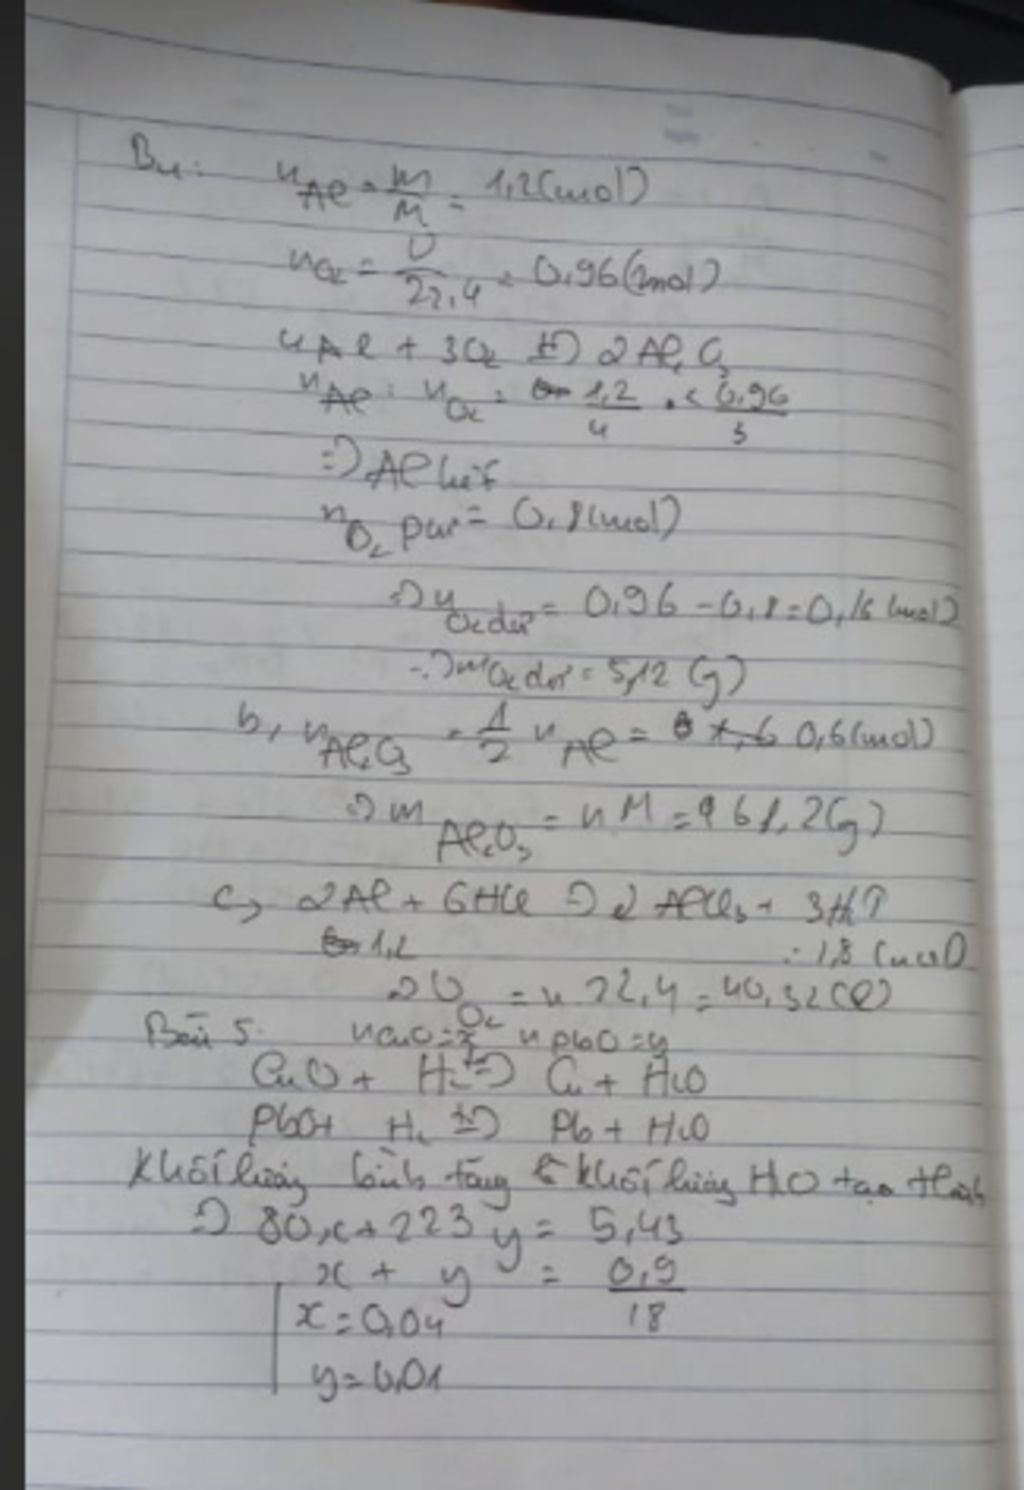 B4: nAl = m/M = 1,2(mol)
nO2 = V/22,4 = 0,96(mol)
4Al + 3O2 t°→ 2Al2O3
nAl : nO2 = 1,2/4 < 0,96/3
=> Al hết
nO2 pư = 0,8(mol)
=> nO2 dư = 0,96 - 0,8 = 0,16 (mol)
=> mO2 dư = 5,12 (g)
b, nAl2O3 = 1/2 nAl = 0,6(mol)
=> mAl2O3 = n M = 61,2(g)
c, 2Al + 6HCl => 2AlCl3 + 3H2↑
1,2 : 1,8 (mol)
=> VO2 = n 22,4 = 40,32(l)
Bài 5: nCuO = x nPbO = y
CuO + H2 t°→ Cu + H2O
PbO + H2 t°→ Pb + H2O
Khối lượng bình tăng là khối lượng H2O tạo thành
=> 80x + 223y = 5,43
x + y = 0,9/18
x = 0,04
y = 0,01